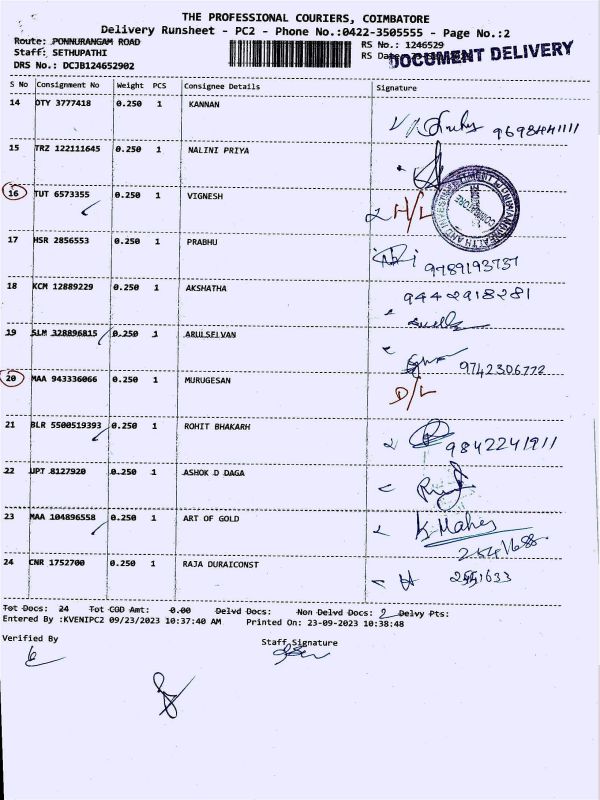 THE PROFESSIONAL COURIERS, COIMBATORE
Delivery Runsheet - PC2 - Phone No.:0422-3505555 - Page No.:2
Route: PONNURANGAM ROAD
Staff: SETHUPATHI
DRS No.: DCJB124652902
RS No.: 1246529
RS
DOCUMENT DELIVERY
S No Consignment No Weight PCS Consignee Details Signature
14 OTY 3777418 0.250 1 KANNAN
9698441111
15 TRZ 122111645 0.250 1 NALINI PRIYA
16 TUT 6573355 0.250 1 VIGNESH
H/L
COIMBATORE
17 HSR 2856553 0.250 1 PRABHU
9789193737
18 KCM 12889229 0.250 1 AKSHATHA
9442918281
19 SLM 328896815 0.250 1 ARULSELVAN
9742306772
20 MAA 943336066 0.250 1 MURUGESAN
D/L
21 BLR 5500519393 0.250 1 ROHIT BHAKARH
9842241911
22 UPT 8127920 0.250 1 ASHOK D DAGA
23 MAA 104896558 0.250 1 ART OF GOLD
K. Mahes
2541688
24 CNR 1752700 0.250 1 RAJA DURAICONST
2551633
Tot Docs: 24 Tot COD Amt: 0.00 Delvd Docs: Non Delvd Docs: 2 Delvy Pts:
Entered By :KVENIPC2 09/23/2023 10:37:40 AM Printed On: 23-09-2023 10:38:48
Verified By
Staff Signature